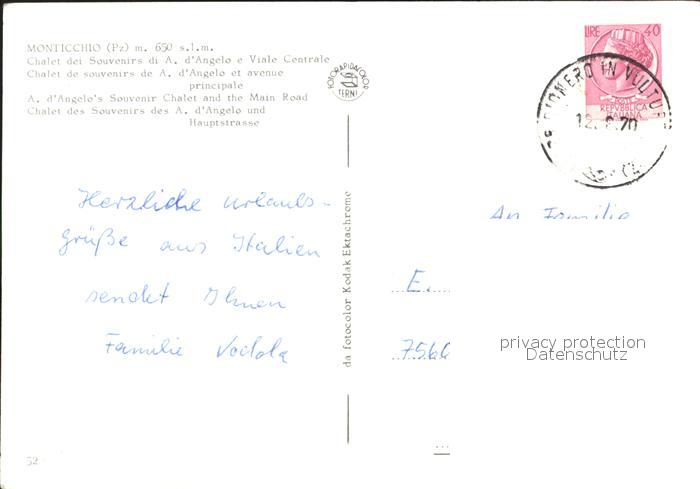 MONTICCHIO (Pz) m. 650 s.l.m.
Chalet dei Souvenirs di A. d'Angelo e Viale Centrale
Chalet de souvenirs de A. d'Angelo et avenue
principale
A. d'Angelo's Souvenir Chalet and the Main Road
Chalet des Souvenirs des A. d'Angelo und
Hauptstrasse
FOTORAPIDACOLOR
TERNI
LIRE 40
POSTE
REPVBBLICA
ITALIANA
RIONERO IN VULTURE
70
Herzliche Urlaubs-
grüße aus Italien
sendet Ihnen
Familie
da fotocolor Kodak Ektachrome
An Familie
E.
7566
privacy protection
Datenschutz
52